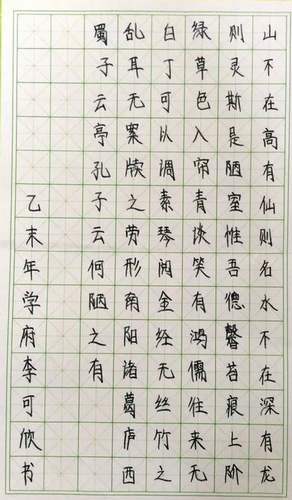 山不在高有仙则名水不在深有龙
则灵斯是陋室惟吾德馨苔痕上阶
绿草色入帘青谈笑有鸿儒往来无
白丁可以调素琴阅金经无丝竹之
乱耳无案牍之劳形南阳诸葛庐西
蜀子云亭孔子云何陋之有
乙未年学府李可欣书